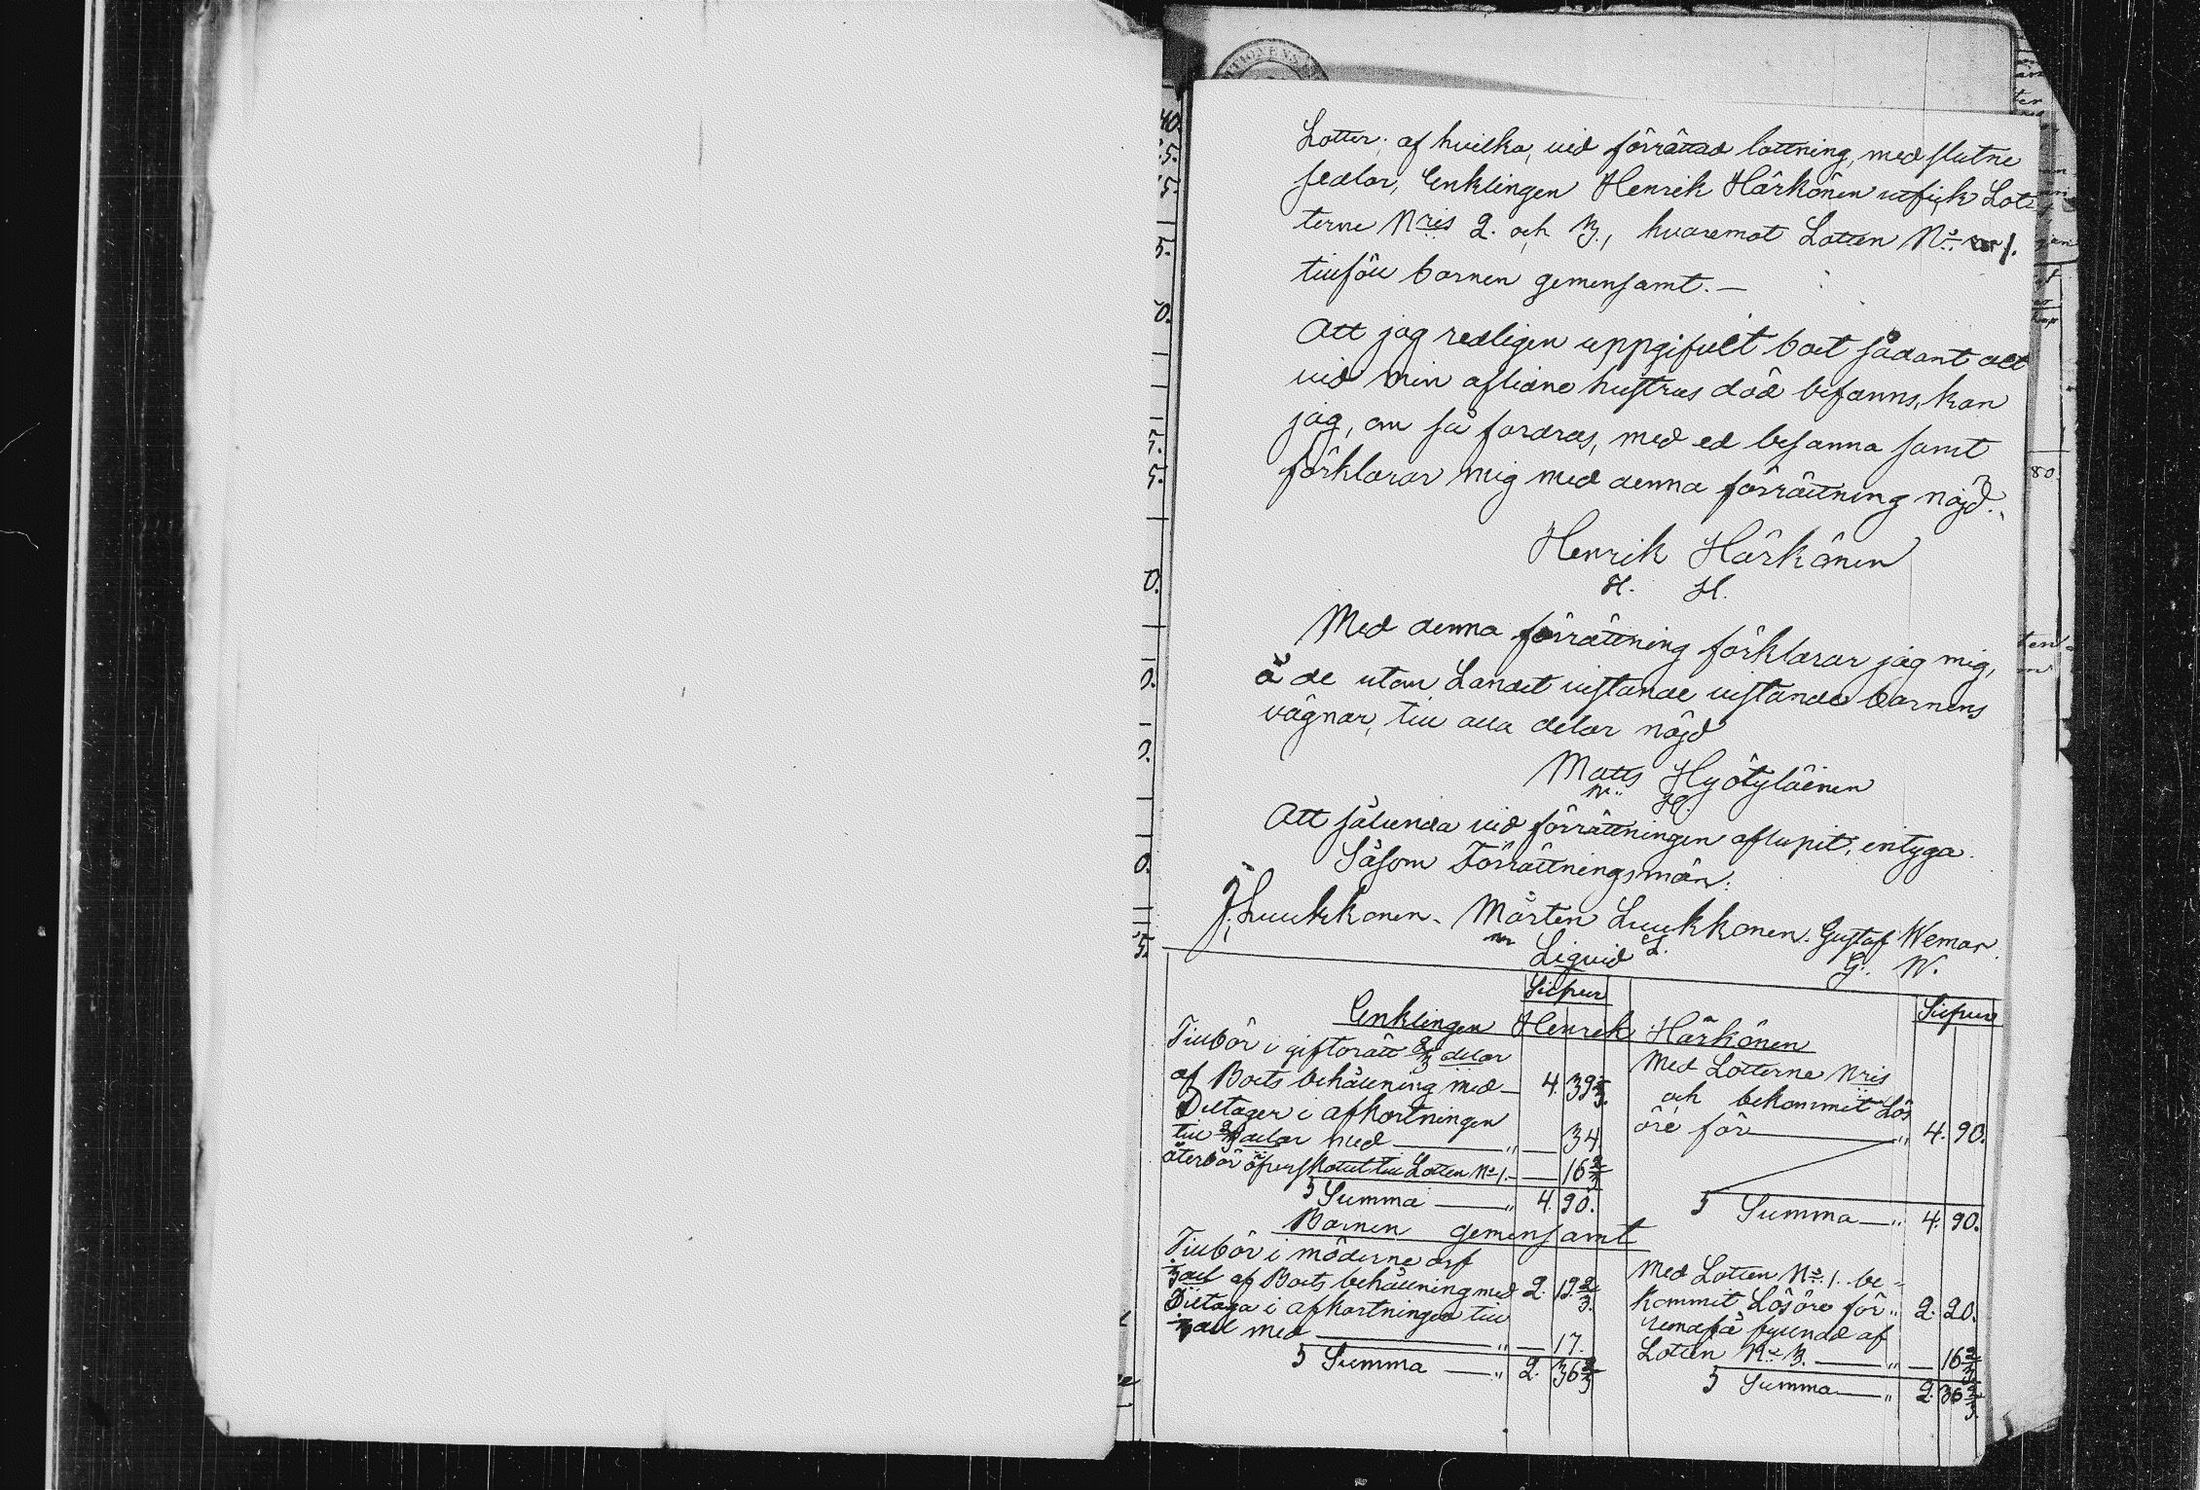 Lotter; af hvilka, vid förrättad lottning, med slutne
sedlar, Enklingen Henrik Härkönen utfick Lot-
terne Nris 2. och 3., hvaremot Lotten No 1.
tillföll barnen gemensamt.—
Att jag redligen uppgifvit boet sådant det
vid min aflidne hustrus död befanns, kan
jag, om så fordras, med ed besanna samt
förklarar mig med denna förrättning nöjd.
Henrik Härkönen
H. H.
Med denna förrättning förklarar jag mig,
å de utom Landet vistande vistande barnens
vägnar, till alla delar nöjd
Matts Hyötyläinen
M. H.
Att sålunda vid förrättningen aflupit, intyga.
Såsom Förrättningsmän:
J. Luukkonen. Mårten Luukkonen. Gustaf Wemar.
M L. G. W.
Liqvid
Silfver Silfver
Enklingen Henrik Härkönen
Tillbör i giftorätt 2/3 delar
af Boets behållning med — 4. 39 1/3.
Deltager i afkortningen
till 2/3 delar med — " — 34.
återbör öfverskottet till Lotten No 1. — — 16 2/3
S Summa — " 4. 90.
Med Lotterne Nris
och bekommit Lös
öre för — " 4. 90.
S Summa — " 4. 90.
Barnen gemensamt
Tillbör i möderne arf
1/3 del af Boets behållning med 2. 19 2/3.
Deltaga i afkortningen till
1/3 del med — " — 17.
S Summa — " 2. 36 2/3
Med Lotten No 1. be-
kommit Lösöre för " 2. 20.
fyllnad af
Lotten No 3. — " — 16 2/3
S Summa — " 2. 36 2/3.